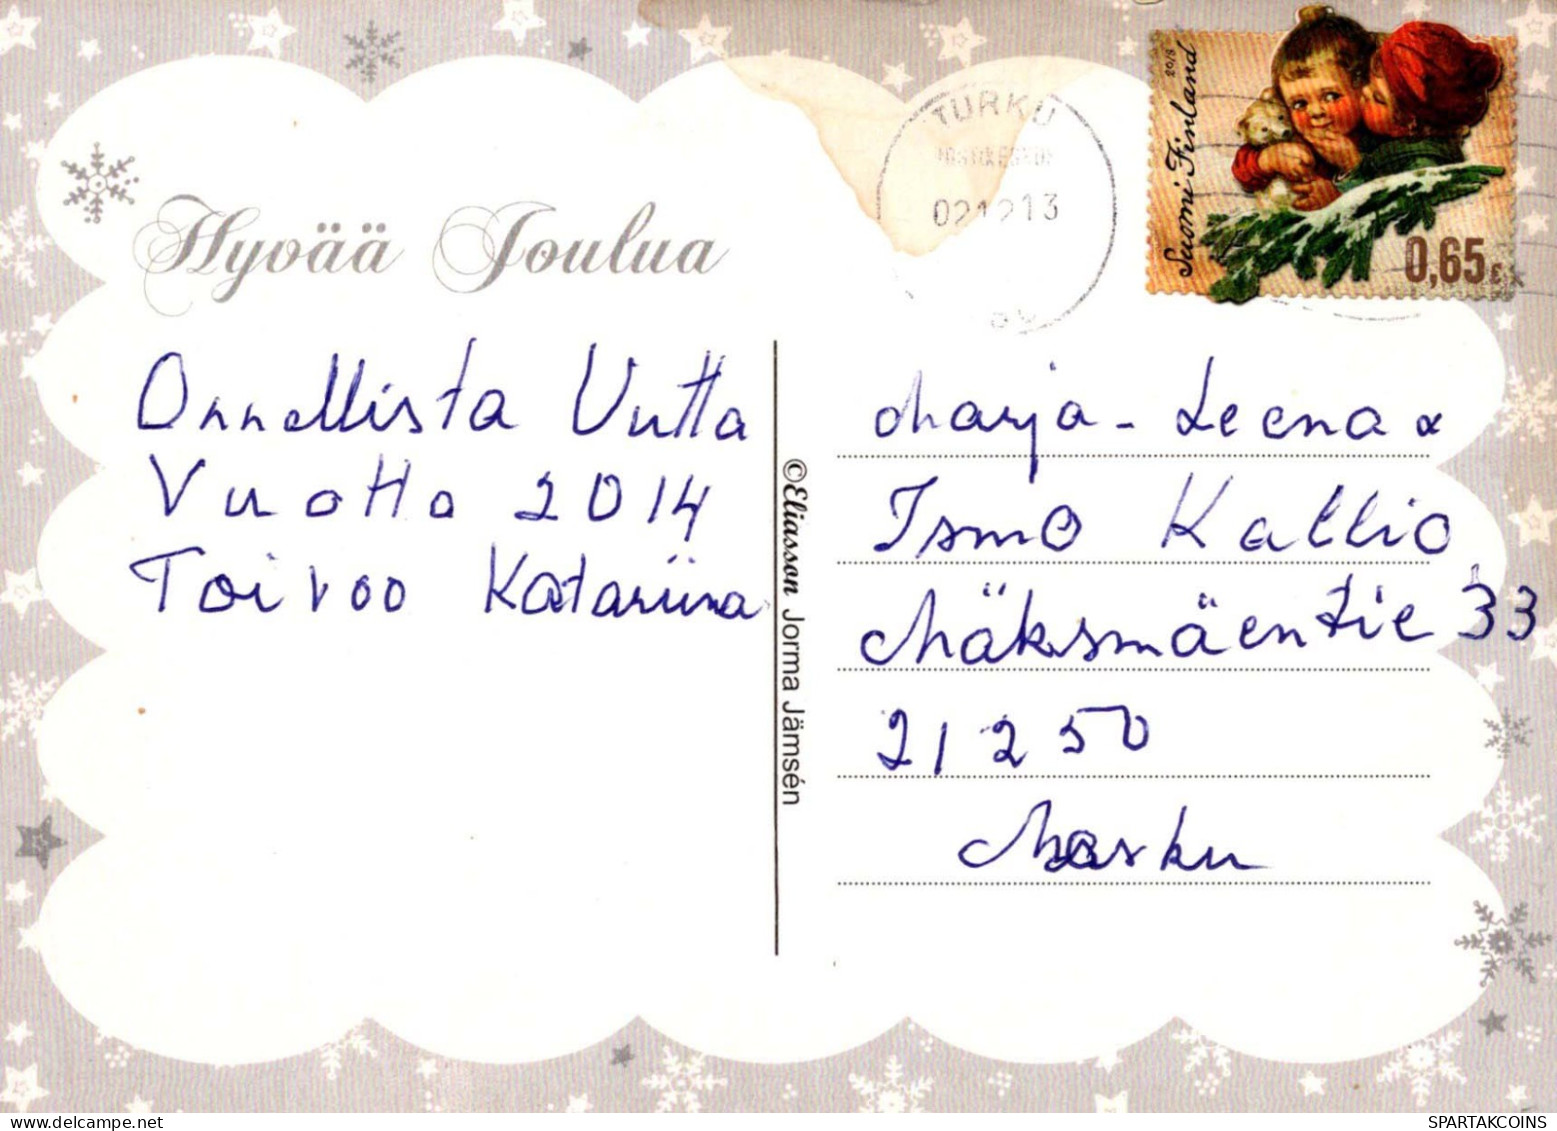 TURKU
021213
2013
Suomi Finland
0,65 €
Hyvää Joulua
Onnellista Uutta
Vuotta 2014
Toivoo Katariina
©Eliasson Jorma Jämsén
Marja-Leena &
Ismo Kallio
Mäksmäentie 33
21250
Masku
SPARTAKCOINS